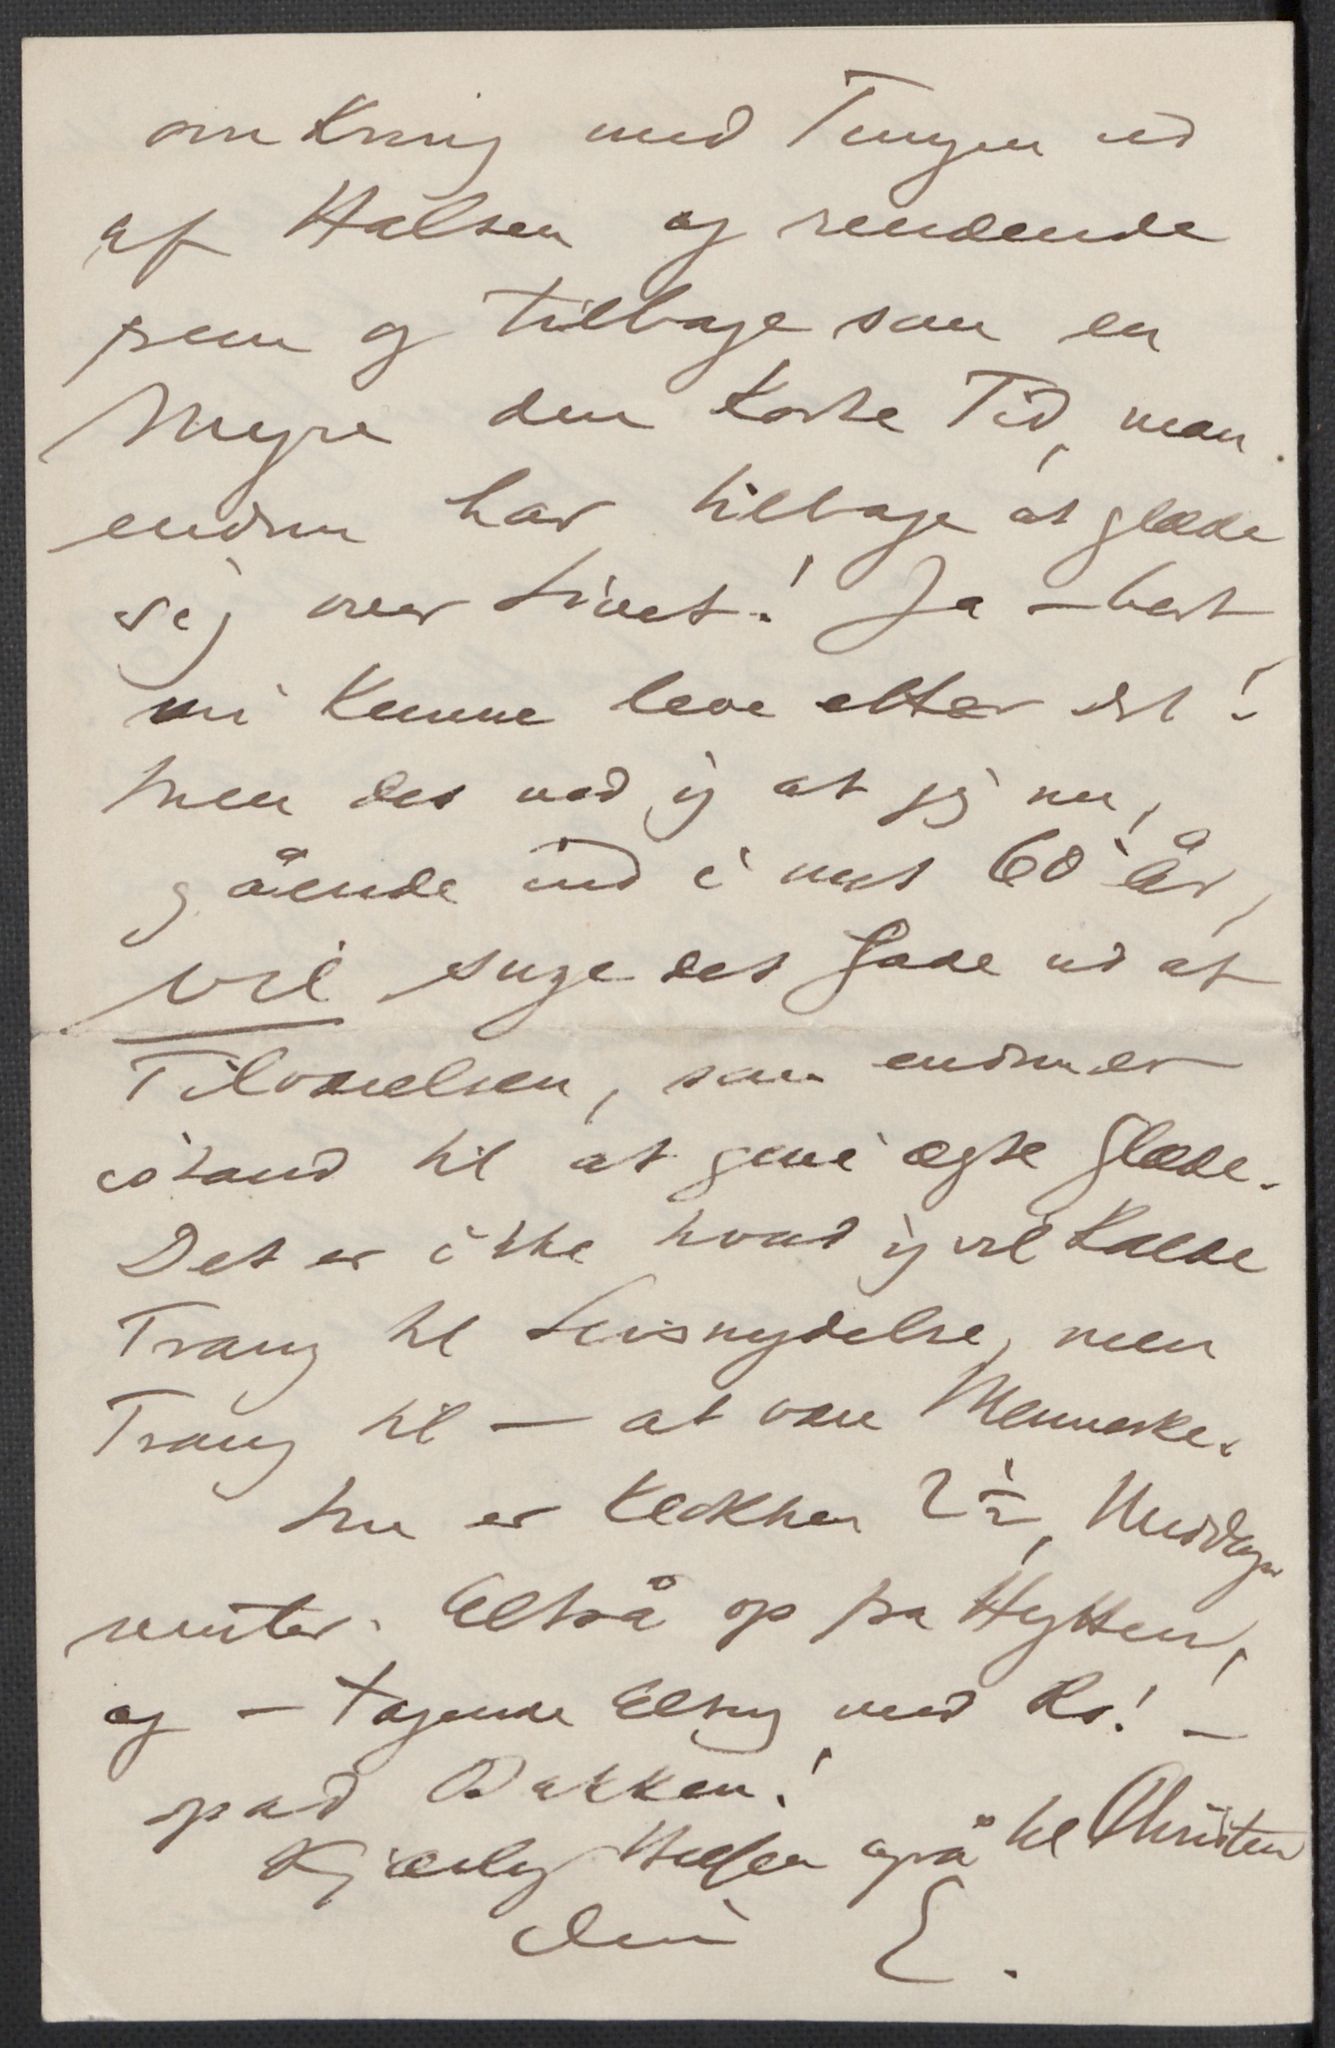 omkring med Tungen ud
af Halsen og rendende
frem og tilbage som en
Myre den korte Tid, man
endnu har tilbage at glæde
sig over Livet! Ja – bart
vi kunne leve efter det!
Men det ved jeg at jeg nu,
gående ind i mit 60 år,
vil suge det Gode ud af
Tilværelsen, som endnu er
istand til at give ægte Glæde.
Det er ikke hvad jeg vil kalde
Trang til Livsnydelse, men
Trang til – at være Menneske.
Nu er Klokken 2½, Middagen
venter. Altså op fra Hytten,
og – tagende Alting med Ro! –
opad Bakken!
Kjærlig Hilsen også til Christen
Din E.